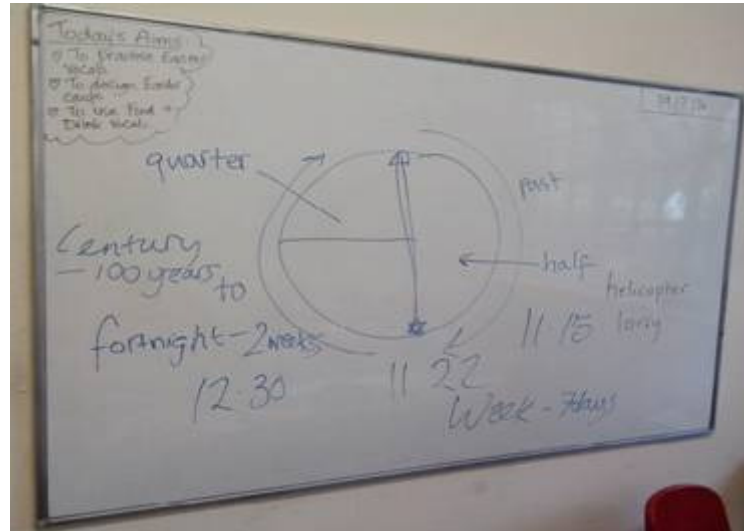 Today's Aims
To Practise Easter
Vocab
To design Easter
cards
To use Food +
Drink Vocab.
quarter
past
Century
- 100 years
to
half
helicopter
lorry
fortnight - 2 weeks
11.15
12.30
11 22
Week - 7days